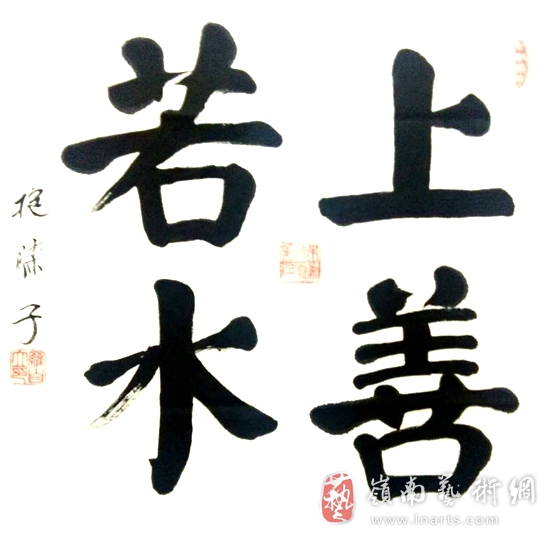 上善
若水
子
藝 嶺南藝術網
www.lnarts.com